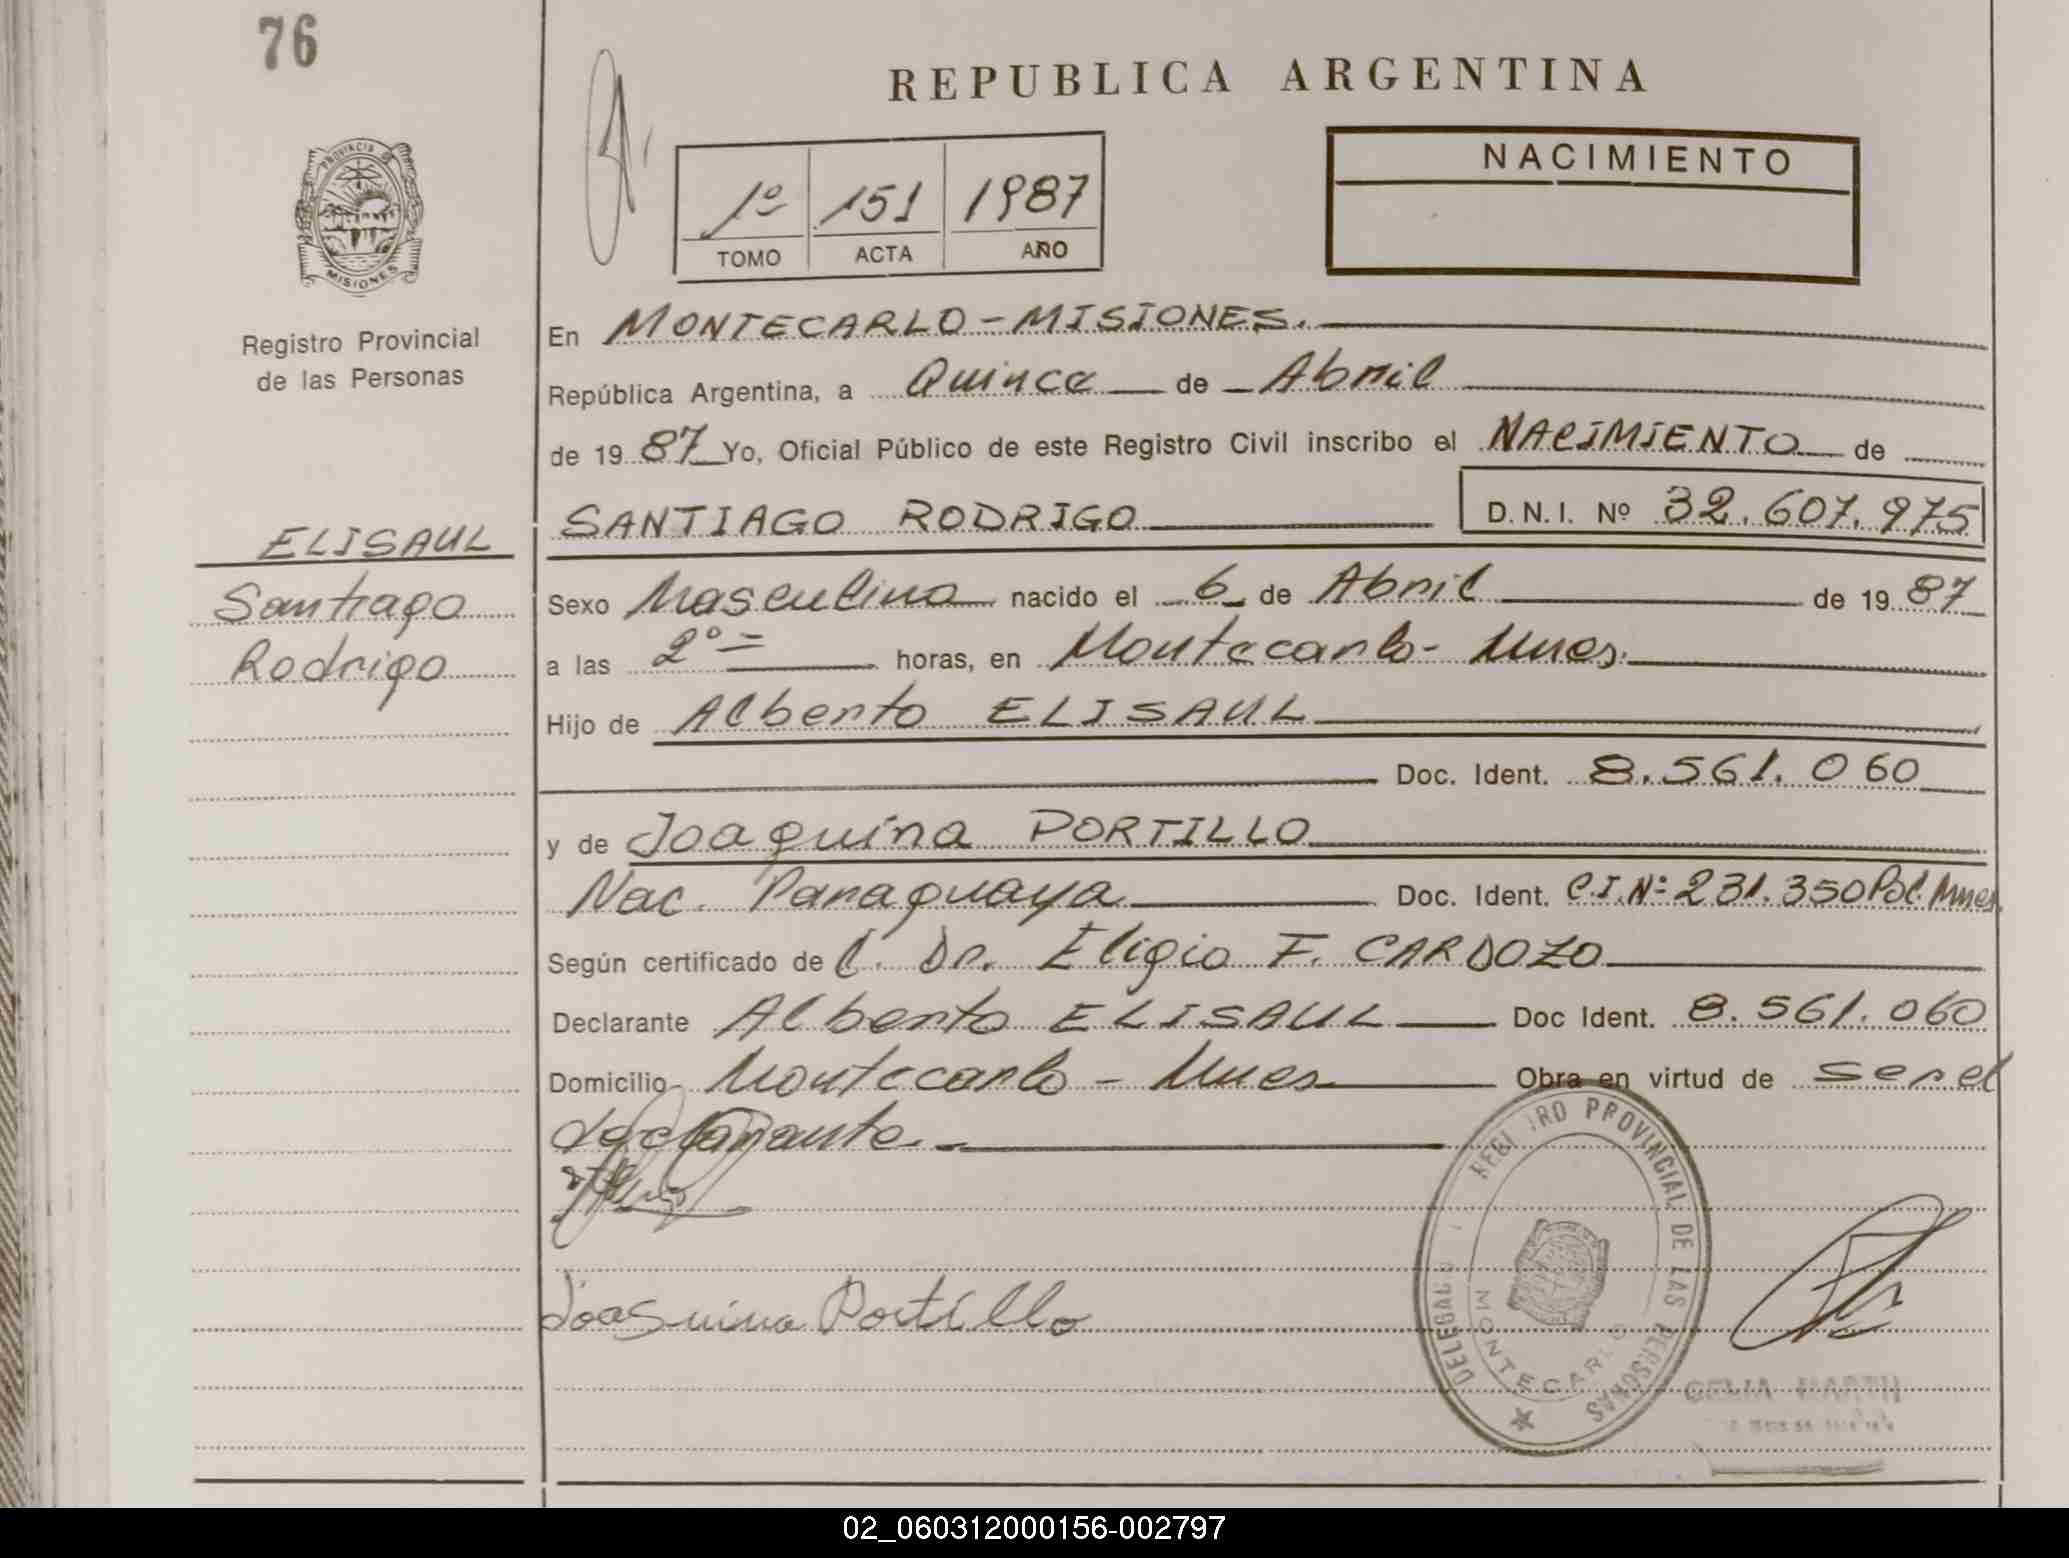 76
REPUBLICA ARGENTINA
PROVINCIA DE
MISIONES
Registro Provincial
de las Personas
1º 151 1987
TOMO ACTA AÑO
NACIMIENTO
En MONTECARLO - MISIONES.
República Argentina, a Quince de Abril
de 1987 Yo, Oficial Público de este Registro Civil inscribo el NACIMIENTO de
SANTIAGO RODRIGO D.N.I. Nº 32.607.975
ELISAUL
Santiago
Rodrigo
Sexo Masculino nacido el 6 de Abril de 1987
a las 2º= horas, en Montecarlo- Mnes.
Hijo de Alberto ELISAUL
Doc. Ident. 8.561.060
y de Joaquina PORTILLO
Nac. Paraguaya Doc. Ident. C.I.Nº 231.350 Pol. Mnes.
Según certificado de l. Dr. Eligio F. CARDOZO
Declarante Alberto ELISAUL Doc Ident. 8.561.060
Domicilio Montecarlo - Mnes Obra en virtud de ser el
declarante.
Joasuina Portillo
REGISTRO PROVINCIAL DE LAS PERSONAS
MONTECARLO
02_060312000156-002797